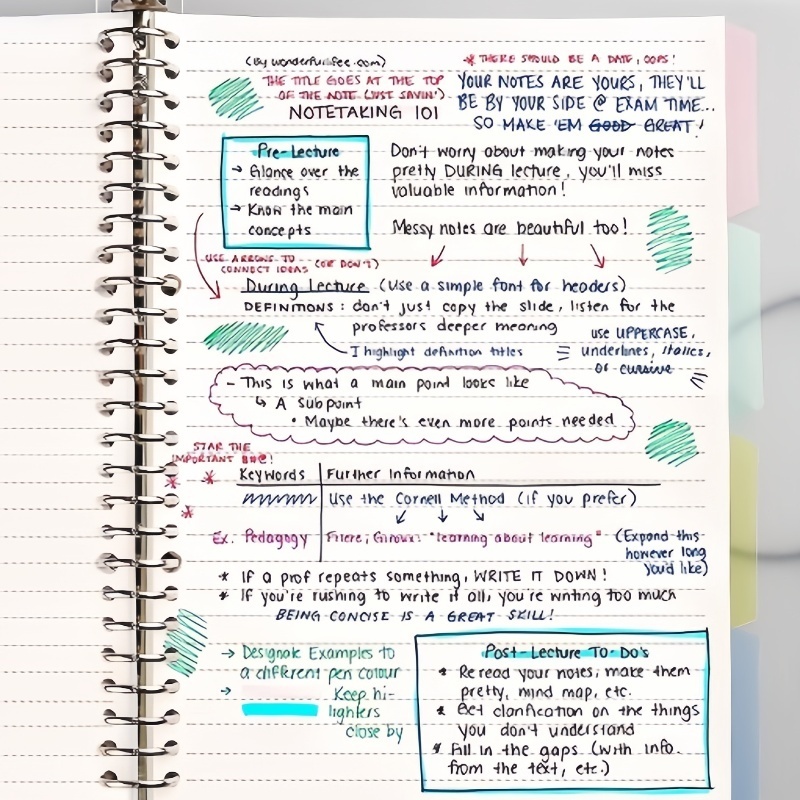 (By wonderfulilfee.com)
* THERE SHOULD BE A DATE, OOPS!
THE TITLE GOES AT THE TOP
OF THE NOTE (JUST SAYIN')
NOTETAKING 101
YOUR NOTES ARE YOURS, THEY'LL
BE BY YOUR SIDE @ EXAM TIME...
SO MAKE 'EM GOOD GREAT!
Pre-Lecture
→ Glance over the
readings
→ Know the main
concepts
Don't worry about making your notes
pretty DURING lecture, you'll miss
valuable information!
Messy notes are beautiful too!
USE ARROWS TO
CONNECT IDEAS (OR DON'T)
During Lecture (Use a simple font for headers)
DEFINITIONS: don't just copy the slide, listen for the
professors deeper meaning
I highlight definition titles
use UPPERCASE,
underlines, italics,
or cursive
- This is what a main point looks like
↳ A subpoint
• Maybe there's even more points needed
STAR THE
IMPORTANT $#@!
Keywords | Further Information
Use the Cornell Method (if you prefer)
Ex. Pedagogy | Giroux: "learning about learning"
(Expand this
however long
you'd like)
* If a prof repeats something, WRITE IT DOWN!
* If you're rushing to write it all, you're writing too much
BEING CONCISE IS A GREAT SKILL!
→ Designate Examples to
a different pen colour
→ Keep hi-
lighters
close by
Post-Lecture To-Do's
* Re read your notes, make them
pretty, mind map, etc.
* Get clarification on the things
you don't understand
* Fill in the gaps (with info.
from the text, etc.)